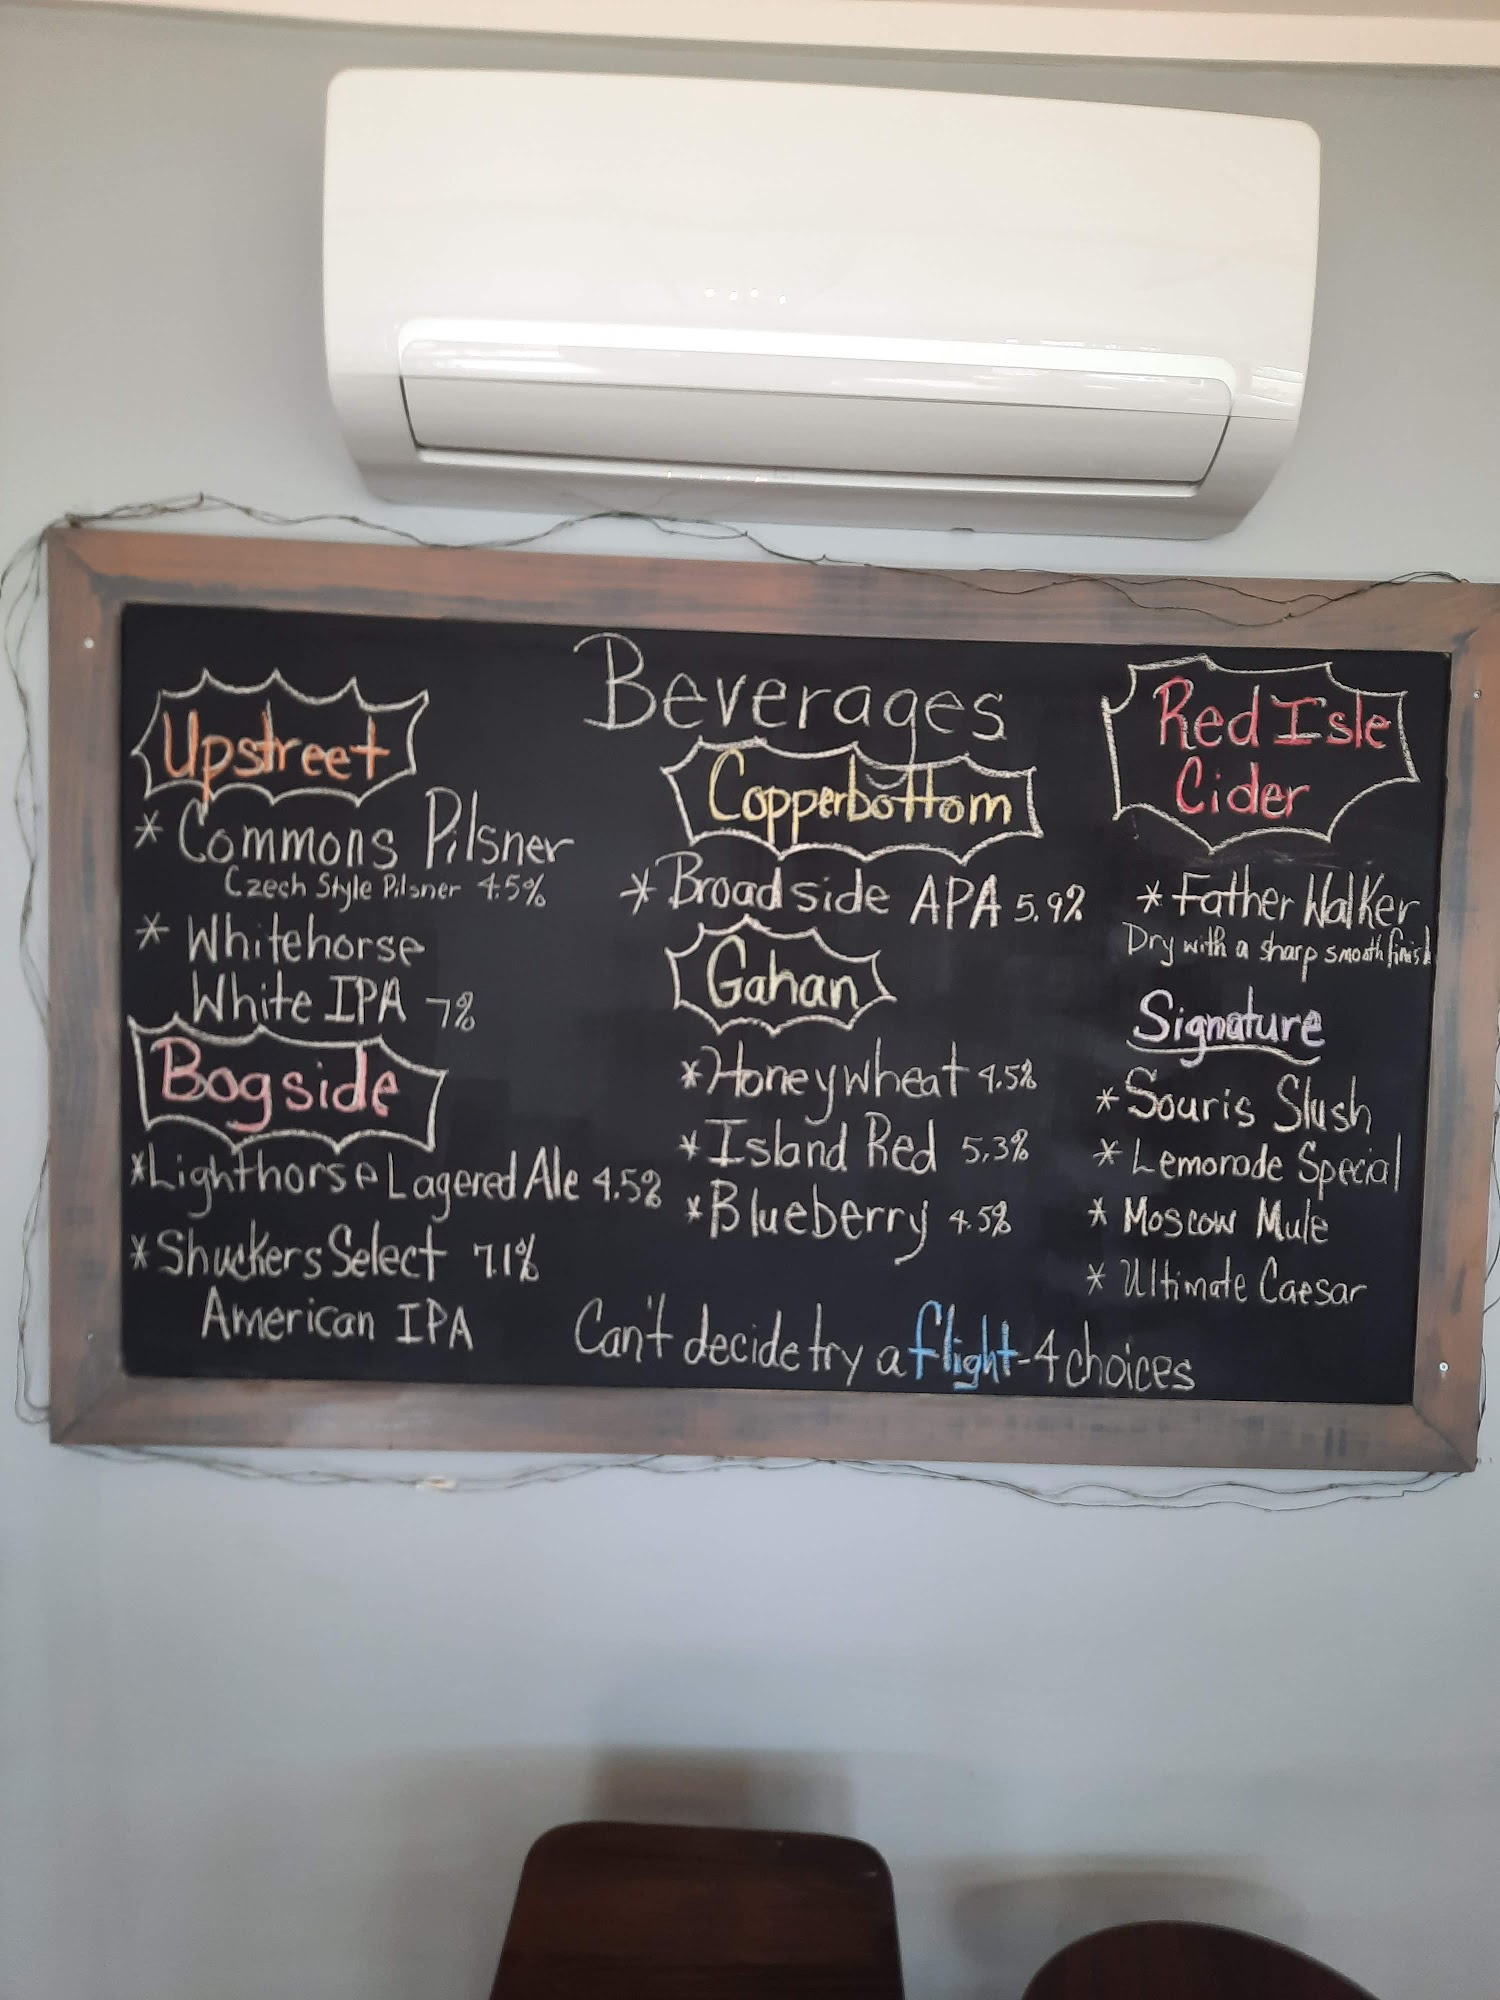 Beverages
Upstreet
* Commons Pilsner
Czech Style Pilsner 4.5%
* Whitehorse
White IPA 7%
Bogside
* Lighthorse Lagered Ale 4.5%
* Shuckers Select 7.1%
American IPA
Copperbottom
* Broadside APA 5.9%
Gahan
* Honeywheat 4.5%
* Island Red 5.3%
* Blueberry 4.5%
Red Isle
Cider
* Father Walker
Dry with a sharp smooth finish
Signature
* Souris Slush
* Lemonade Special
* Moscow Mule
* Ultimate Caesar
Can't decide try a flight-4 choices